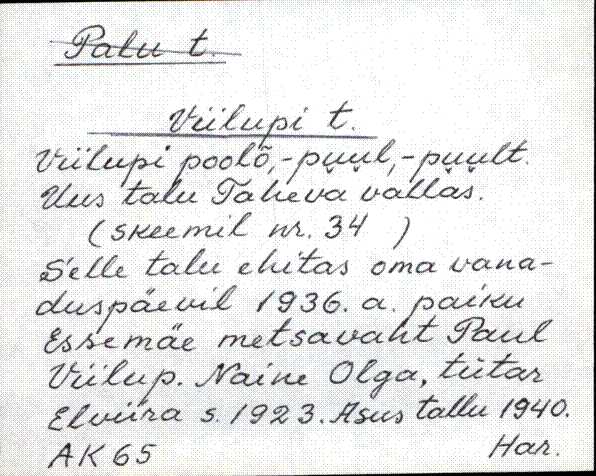 Palu t.
Viilupi t.
Viilupi poolõ, -puul, -puult.
Uus talu Taheva vallas.
(skeemil nr. 34 )
Selle talu ehitas oma vana-
duspäevil 1936. a. paiku
Essemäe metsavaht Paul
Viilup. Naine Olga, tütar
Elviira s. 1923. Asus tallu 1940.
AK 65 Har.